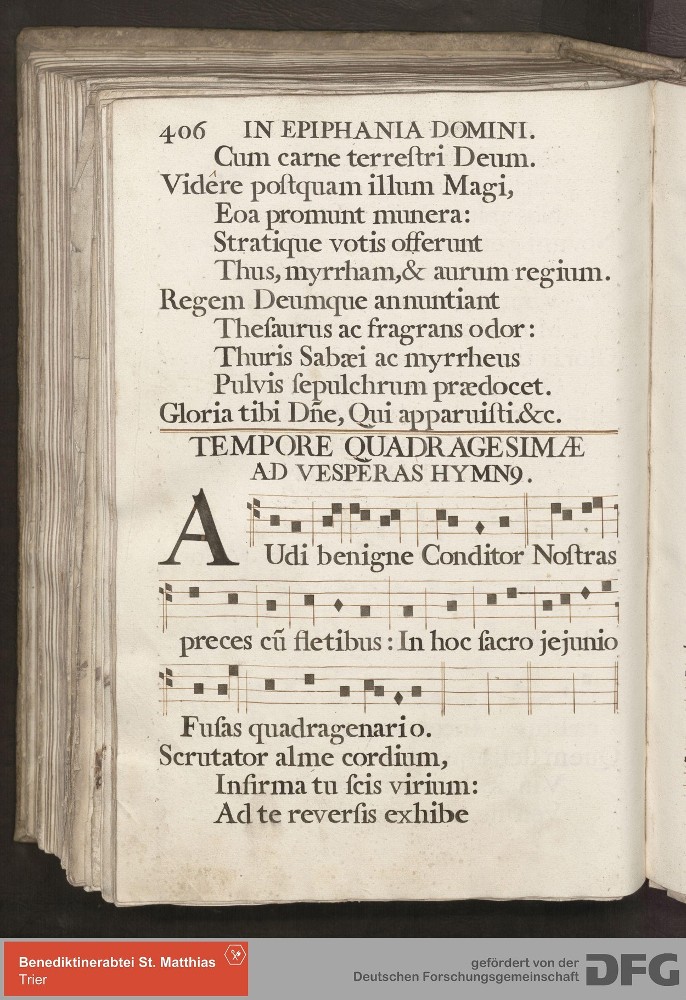 406 IN EPIPHANIA DOMINI.
Cum carne terreſtri Deum.
Vidêre poſtquam illum Magi,
Eoa promunt munera:
Stratique votis offerunt
Thus, myrrham,& aurum regium.
Regem Deumque annuntiant
Theſaurus ac fragrans odor:
Thuris Sabæi ac myrrheus
Pulvis ſepulchrum prædocet.
Gloria tibi Dñe, Qui apparuiſti.&c.
TEMPORE QUADRAGESIMÆ
AD VESPERAS HYMN9.
AUdi benigne Conditor Noſtras
preces cũ fletibus: In hoc ſacro jejunio
Fuſas quadragenario.
Scrutator alme cordium,
Infirma tu ſcis virium:
Ad te reverſis exhibe
Benediktinerabtei St. Matthias
Trier
gefördert von der
Deutschen Forschungsgemeinschaft
DFG